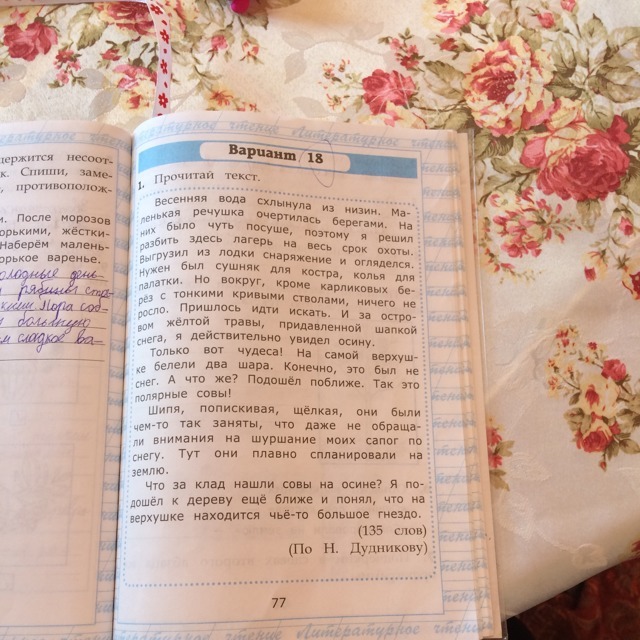 держится несоот-
к. Спиши, заме-
, противополож-
и. После морозов
орькими, жёстки-
Наберём малень-
орькое варенье.
олодные день-
и рябина
Пора соб-
больную
ем сладкое ва-
Литературное чтение Литературное чтение
Вариант 18
1. Прочитай текст.
Весенняя вода схлынула из низин. Ма-
ленькая речушка очертилась берегами. На
них было чуть посуше, поэтому я решил
разбить здесь лагерь на весь срок охоты.
Выгрузил из лодки снаряжение и огляделся.
Нужен был сушняк для костра, колья для
палатки. Но вокруг, кроме карликовых бе-
рёз с тонкими кривыми стволами, ничего не
росло. Пришлось идти искать. И за остро-
вом жёлтой травы, придавленной шапкой
снега, я действительно увидел осину.
Только вот чудеса! На самой верхуш-
ке белели два шара. Конечно, это был не
снег. А что же? Подошёл поближе. Так это
полярные совы!
Шипя, попискивая, щёлкая, они были
чем-то так заняты, что даже не обраща-
ли внимания на шуршание моих сапог по
снегу. Тут они плавно спланировали на
землю.
Что за клад нашли совы на осине? Я по-
дошёл к дереву ещё ближе и понял, что на
верхушке находится чьё-то большое гнездо.
(135 слов)
(По Н. Дудникову)
77
Литературное чтение